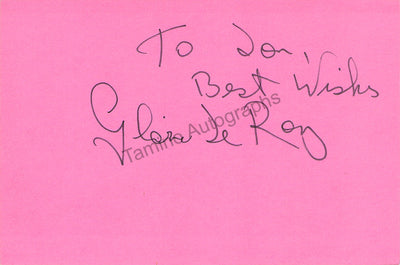 To Jon,
Best Wishes
Gloria De Roy
Tamino Autographs